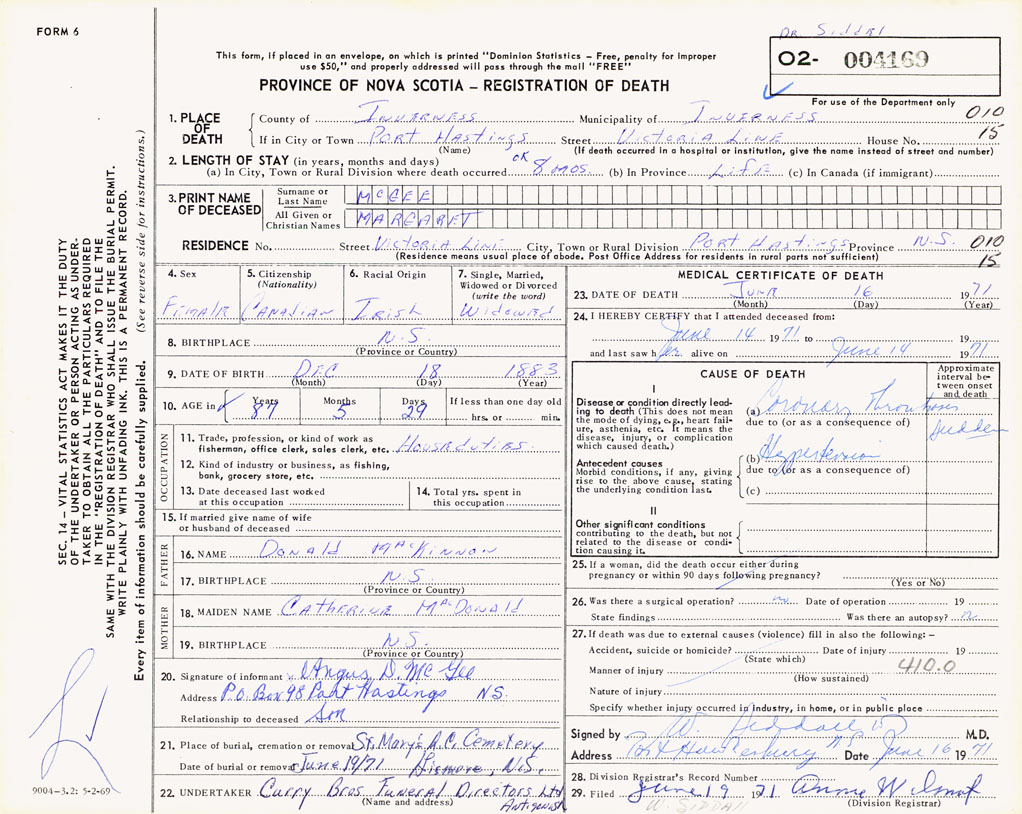 FORM 6
DR SIDDAL
This form, if placed in an envelope, on which is printed "Dominion Statistics – Free, penalty for improper
use $50," and properly addressed will pass through the mail "FREE"
O2- 004169
PROVINCE OF NOVA SCOTIA – REGISTRATION OF DEATH
For use of the Department only
1. PLACE OF DEATH County of INVERNESS Municipality of INVERNESS 010
If in City or Town PORT HASTINGS Street VICTORIA LINE House No. 15
(Name) (If death occurred in a hospital or institution, give the name instead of street and number)
2. LENGTH OF STAY (in years, months and days) OK
(a) In City, Town or Rural Division where death occurred 8 MOS. (b) In Province LIFE (c) In Canada (if immigrant)
3. PRINT NAME OF DECEASED Surname or Last Name MCGEE
All Given or Christian Names MARGARET
RESIDENCE No. Street VICTORIA LINE City, Town or Rural Division PORT HASTINGS Province N.S. 010
(Residence means usual place of abode. Post Office Address for residents in rural parts not sufficient) 15
4. Sex Female
5. Citizenship (Nationality) Canadian
6. Racial Origin Irish
7. Single, Married, Widowed or Divorced (write the word) Widowed
8. BIRTHPLACE N.S.
(Province or Country)
9. DATE OF BIRTH DEC 18 1883
(Month) (Day) (Year)
10. AGE in Years 87 Months 5 Days 29 If less than one day old
hrs. or min.
OCCUPATION
11. Trade, profession, or kind of work as
fisherman, office clerk, sales clerk, etc. Houseduties.
12. Kind of industry or business, as fishing,
bank, grocery store, etc.
13. Date deceased last worked
at this occupation
14. Total yrs. spent in
this occupation
15. If married give name of wife
or husband of deceased
FATHER
16. NAME Donald MacKinnon
17. BIRTHPLACE N.S
(Province or Country)
MOTHER
18. MAIDEN NAME Catherine MacDonald
19. BIRTHPLACE N.S.
(Province or Country)
20. Signature of informant Angus D. McGee
Address P.O. Box 98 Port Hastings N.S.
Relationship to deceased Son
21. Place of burial, cremation or removal St. Mary's R.C. Cemetery
Date of burial or removal June 19/71 Lismore, N.S.
22. UNDERTAKER Curry Bros. Funeral Directors Ltd
(Name and address) Antigonish
MEDICAL CERTIFICATE OF DEATH
23. DATE OF DEATH June 16 1971
(Month) (Day) (Year)
24. I HEREBY CERTIFY that I attended deceased from:
June 14 1971 to 19
and last saw her alive on June 14 1971
CAUSE OF DEATH
Approximate interval between onset and death
I
Disease or condition directly leading to death (This does not mean the mode of dying, e.g., heart failure, asthenia, etc. It means the disease, injury, or complication which caused death.)
(a) Coronary Thrombosis Sudden
due to (or as a consequence of)
Antecedent causes
Morbid conditions, if any, giving rise to the above cause, stating the underlying condition last.
(b) Hypertension
due to (or as a consequence of)
(c)
II
Other significant conditions
contributing to the death, but not related to the disease or condition causing it.
25. If a woman, did the death occur either during
pregnancy or within 90 days following pregnancy?
(Yes or No)
26. Was there a surgical operation? no Date of operation 19
State findings Was there an autopsy? no
27. If death was due to external causes (violence) fill in also the following: –
Accident, suicide or homicide? Date of injury 19
(State which)
Manner of injury 410.0
(How sustained)
Nature of injury
Specify whether injury occurred in industry, in home, or in public place
Signed by W. Siddall M.D.
Address Port Hawkesbury N.S. Date June 16 1971
28. Division Registrar's Record Number
29. Filed June 19 1971 Annie Wilmot
(Division Registrar)
W. SIDDALL
SEC. 14 – VITAL STATISTICS ACT MAKES IT THE DUTY
OF THE UNDERTAKER OR PERSON ACTING AS UNDER-
TAKER TO OBTAIN ALL THE PARTICULARS REQUIRED
IN THE "REGISTRATION OF DEATH" AND TO FILE THE
SAME WITH THE DIVISION REGISTRAR WHO SHALL ISSUE THE BURIAL PERMIT.
WRITE PLAINLY WITH UNFADING INK. THIS IS A PERMANENT RECORD.
Every item of information should be carefully supplied. (See reverse side for instructions.)
9004-3.2: 5-2-69